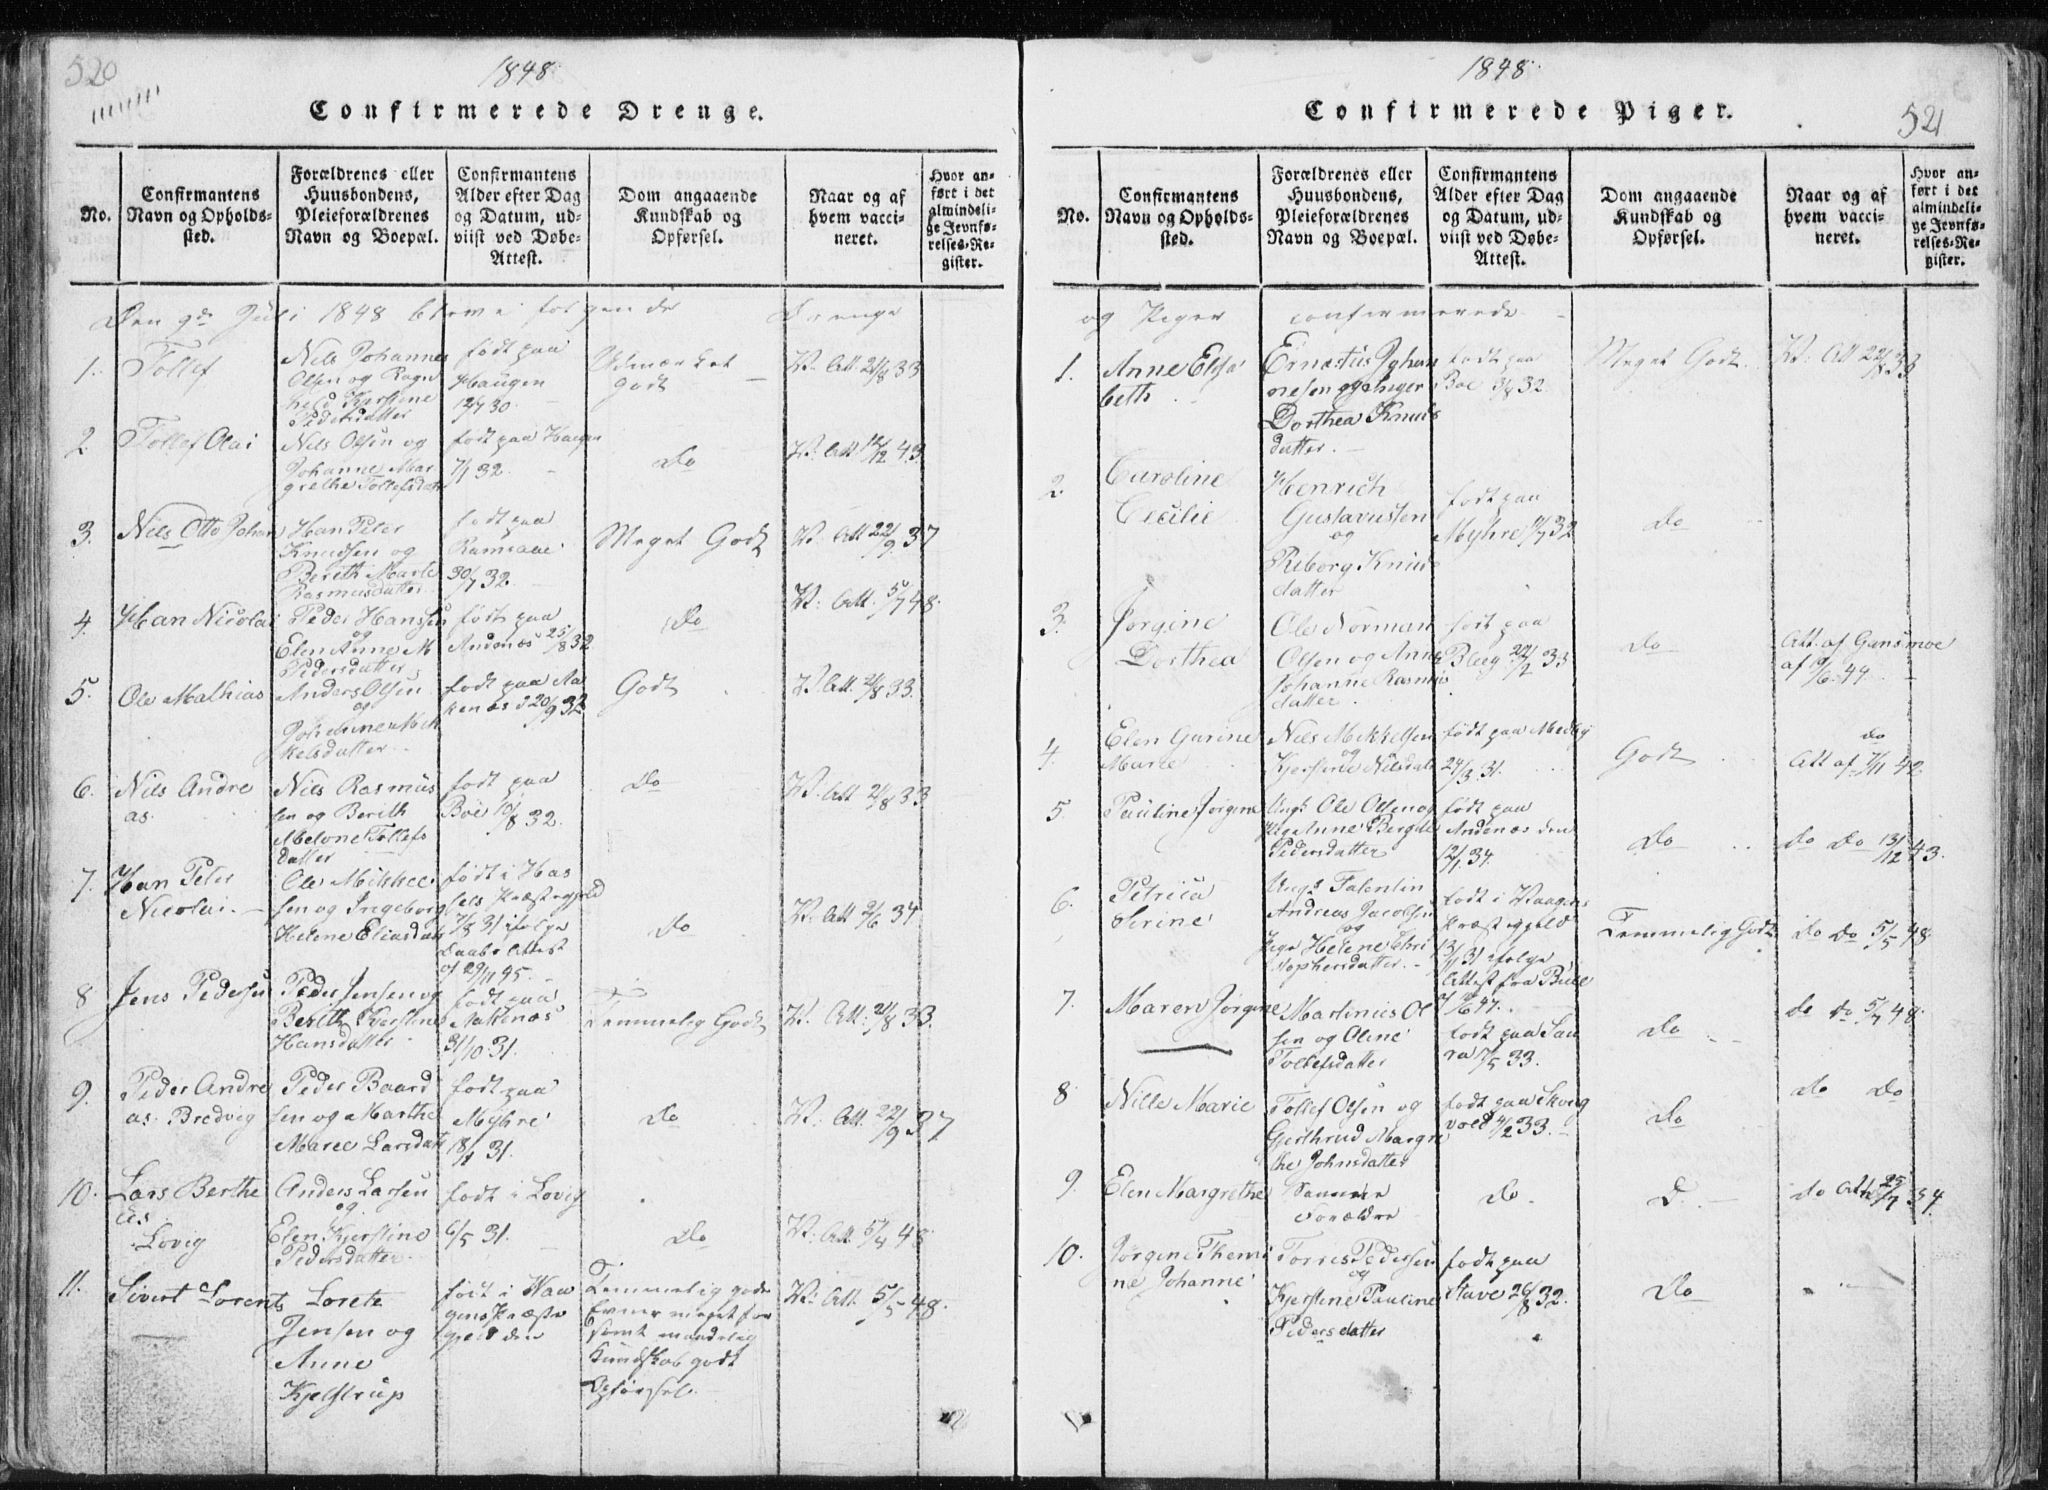 520
1848
Confirmerede Drenge.
No.
Confirmantens
Navn og Opholds-
sted.
Forældrenes eller
Huusbondens,
Pleieforældrenes
Navn og Boepæl.
Confirmantens
Alder efter Dag
og Datum, ud-
viist ved Døbe-
Attest.
Dom angaaende
Kundskab og
Opførsel.
Naar og af
hvem vacci-
neret.
Hvor an-
ført i det
almindeli-
ge Jevnfø-
relses-Re-
gister.
Den 9de Juli 1848 bleve følgende Drenge
1.
Tollef
Nils Johannes
Olsen og Ragn
hild Kjerstine
Pedersdatter
født paa
Haugen
12/7 30.
Udmærket
Godt
V. Att. 21/8 33
2.
Tollef Olai
Nils Olsen og
Johanne Mar
grethe Tollefsdatr
født paa Haugen
7/1 32.
Do
V. Att 12/12 43.
3.
Nils Otto Johan
Han Peter
Knudsen og
Berith Marte
Rasmusdatter
født paa
Ramsaae
30/7 32.
Meget Godt
V. Att 22/9 37
4.
Han Nicolai
Peder Hansen
og
Elen Anne M
Pedersdatter
født paa
Andenæs 25/8 32
Do
V. Att. 5/7 48.
5.
Ole Mathias
Anders Olsen
og
Johanne Mik
kelsdatter
født paa Aa
kenæs d 20/9 32
Godt
V. Att. 21/8 33.
6.
Nils Andre
as.
Nils Rasmus
sen og Berith
Melone Tollefs
datter
født paa
Boe 11/8 32.
Do
V. Att 21/8 33
7.
Han Peter
Nicolai.
Ole Mikkel
sen og Ingeborg
Helene Eliasdatr
født i Has
sels Præstegjeld
7/8 31 ifølge
Daabs Attest
af 29/11 45.
Do
V. Att 2/6 34
8
Jens Pedersen
Peder Jensen og
Berith Kjerstine
Hansdatter
født paa
Aakenæs
31/10 31.
Temmelig Godt
V. Att: 21/8 33.
9.
Peder Andre
as. Bredvig
Peder Baard
sen og Marthe
Maree Larsdatr
født paa
Myhre
18/1 31.
Do
V. Att. 22/9 37
10.
Lars Berthe
us.
Lovig
Anders Larsen
og
Elen Kjerstine
Pedersdatter.
født i Lovig
6/5 31.
Do
V. Att. 5/7 48
11.
Sivert Lorents
Lorets
Jensen og
Anne
Kjelstrup
født i Waa
gens Præste
gjeld den
Temmelig gode
Evner meget for
sømt maadelig
Kundskab godt
Opførsel.
V. Att. 5/5 48.
1848
Confirmerede Piger.
521
No.
Confirmantens
Navn og Opholds-
sted.
Forældrenes eller
Huusbondens,
Pleieforældrenes
Navn og Boepæl.
Confirmantens
Alder efter Dag
og Datum, ud-
viist ved Døbe-
Attest.
Dom angaaende
Kundskab og
Opførsel.
Naar og af
hvem vacci-
neret.
Hvor an-
ført i det
almindeli-
ge Jevnfø-
relses-Re-
gister.
og Piger confirmerede
1.
Anne Elisa
beth
Ernestus Johan
nesen og Inger
Dorthea Knuds
datter.
født paa
Boe 3/8 32
Meget Godt
V. Att 22/8 33
2.
Caroline
Cecilie
Henrich
Gustavussen
og
Riborg Knuds
datter
født paa
Myhre 11/7 32
Do
3.
Jørgine
Dorthea
Ole Norman
Olsen og Anne
Johanne Rasmus
datter
født paa
Bleeg 22/2 33
Do
Att. af Gunsmoe
af 19/6 44
4.
Elen Gurine
Marie
Nils Mikkelsen
og
Kjerstine Nilsdatr
født paa Medby
24/3 31.
Godt
do
Att af 7/11 42
5.
Pauline Jørgine
Ungk Ole Olsen og
Pige Anne Bergite
Pedersdatter
født paa
Andenæs den
12/1 34.
Do
do do 13/12 43.
6.
Petrica
Serine
Ungk Falentin
Andreas Jacobsen
og
Pige Helene Chri
stophersdatter.
født i Vaagens
Præstegjeld
12/1 31 ifølge
Attest fra Bue
Temmelig Godt
do do 5/5 48
7.
Maren Jørgine
Martinus Ol
sen og Oline
Tollefsdatter
født paa Sau
ra 17/5 33.
Do
do do 5/7 48.
8
Nille Marie
Tollef Olsen og
Gjerthrud Margre
the Johnsdatter
født paa Skog
vold 4/2 33.
Do
do do
9.
Elen Margrethe
Samme
Forældre
do
D.
do Att. 25/7 34.
10.
Jørgine Themi
ne Johanne
Torres Pedersen
og
Kjerstine Pauline
Pedersdatter
født paa
Stave 26/8 32.
Do